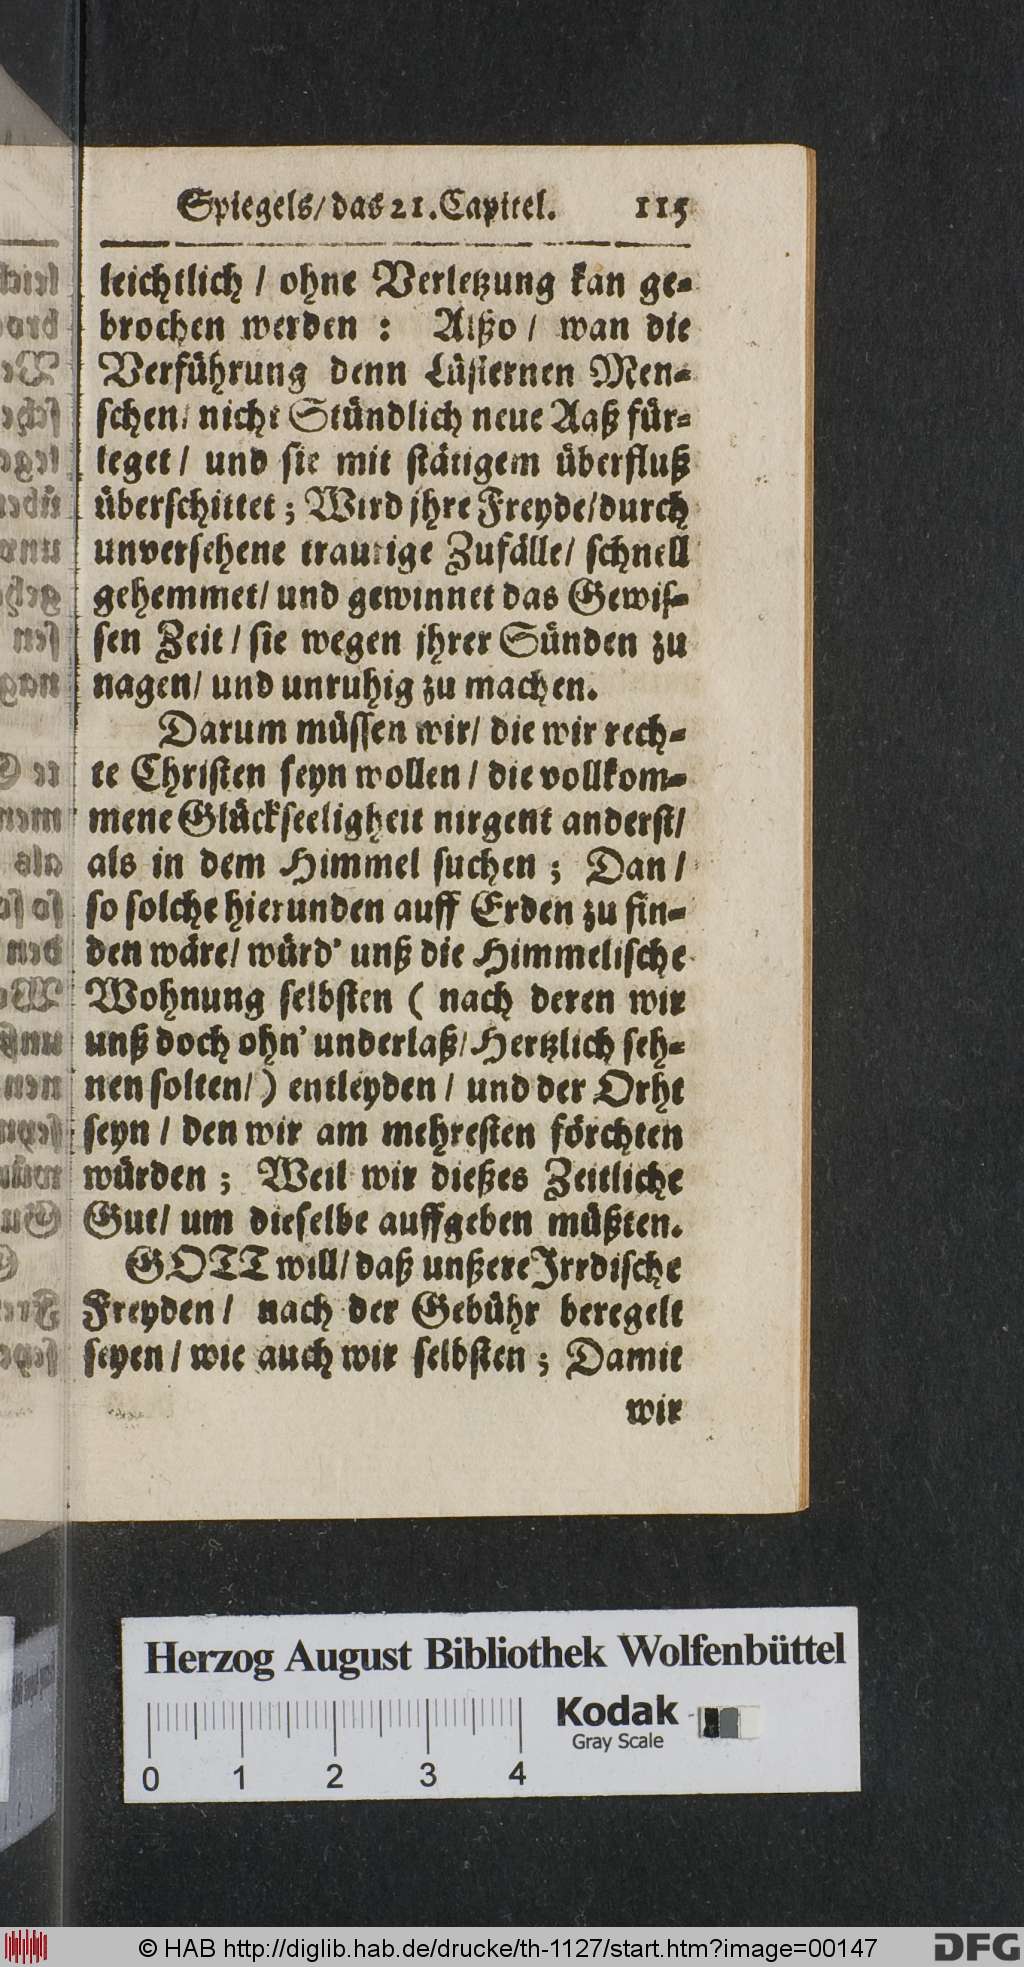 Spiegels/das 21. Capitel. 115
leichtlich / ohne Verletzung kan ge-
brochen werden : Alßo / wan die
Verführung denn Lüsternen Men-
schen/ nicht Stündlich neue Aaß für-
leget / und sie mit stätigem überfluß
überschittet ; Wird jhre Freyde/durch
unversehene traurige Zufälle/ schnell
gehemmet/ und gewinnet das Gewis-
sen Zeit / sie wegen jhrer Sünden zu
nagen/ und unruhig zu machen.
Darum müssen wir/ die wir rech-
te Christen seyn wollen / die vollkom-
mene Glückseeligheit nirgent anderst/
als in dem Himmel suchen ; Dan /
so solche hierunden auff Erden zu fin-
den wäre/ würd' unß die Himmelische
Wohnung selbsten ( nach deren wir
unß doch ohn' underlaß/ Hertzlich seh-
nen solten/) entleyden / und der Orht
seyn / den wir am mehresten förchten
würden ; Weil wir dießes Zeitliche
Gut/ um dieselbe auffgeben müßten.
GOTT will/ daß unßere Jrrdische
Freyden / nach der Gebühr beregelt
seyen / wie auch wir selbsten ; Damit
wir
Herzog August Bibliothek Wolfenbüttel
Kodak
Gray Scale
0 1 2 3 4
© HAB http://diglib.hab.de/drucke/th-1127/start.htm?image=00147
DFG